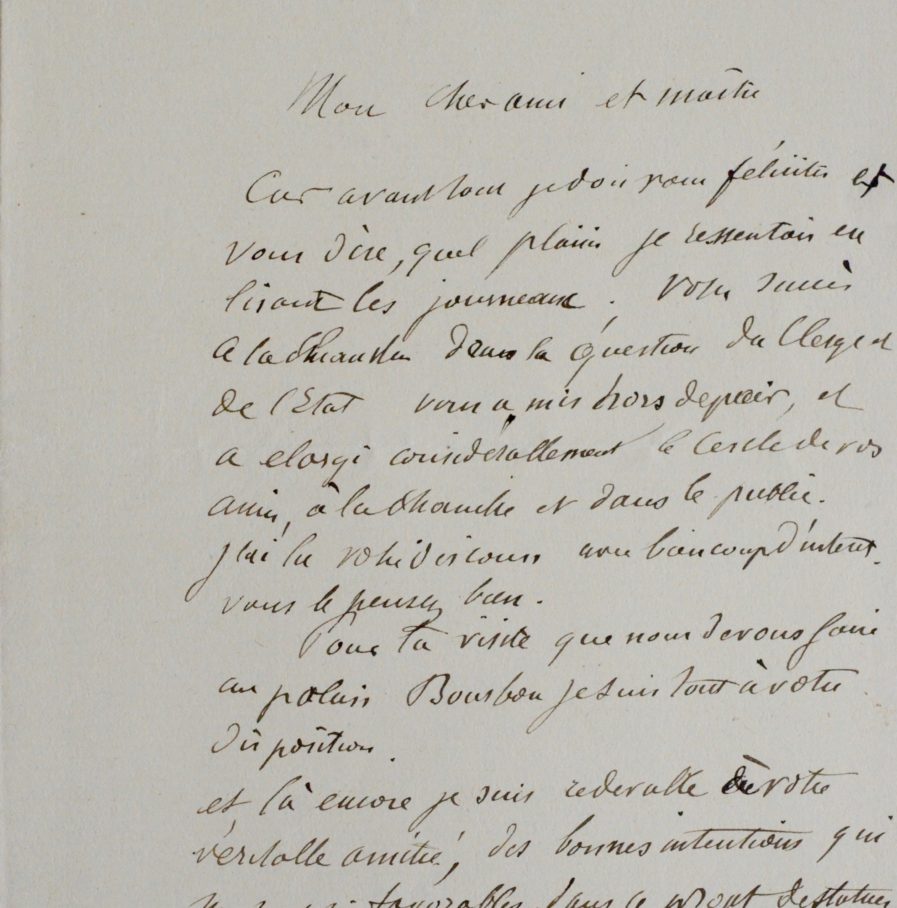 Mon cher ami et maître
Car avant tout je dois vous féliciter et
vous dire, quel plaisir je ressentais en
lisant les journeaux. Votre succès
a la Chambre dans la question du Clergé et
de l'Etat vous a mis hors de pair, et
a elargi considérablement le Cercle de vos
amis, à la Chambre et dans le public.
J'ai lu votre discours avec beaucoup d'interet.
vous le pensez bien.
Pour la visite que nous devons faire
au palais Bourbon je suis tout à votre
disposition.
et là encore je suis redevable de votre
véritable amitié, des bonnes intentions qui
favorables dans le projet de statues